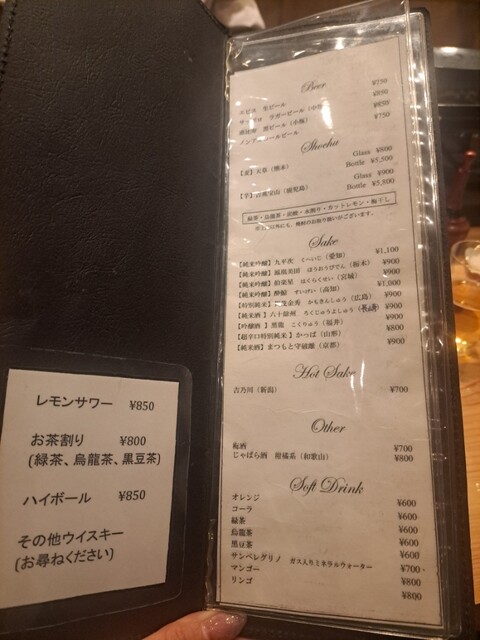 レモンサワー ¥850
お茶割り ¥800
(緑茶、烏龍茶、黒豆茶)
ハイボール ¥850
その他ウイスキー
(お尋ねください)
Beer
エビス 生ビール ¥750
ラガービール (中瓶) ¥850
黒ビール (小瓶) ¥850
ノンアルコールビール ¥750
Shochu
【麦】天草 (熊本) Glass ¥800
Bottle ¥5,500
【芋】 (鹿児島) Glass ¥900
Bottle ¥5,800
緑茶・烏龍茶・炭酸・水割り・カットレモン・梅干し
Sake
【純米吟醸】九平次 くへいじ (愛知) ¥1,100
【純米吟醸】鳳凰美田 ほうおうびでん (栃木) ¥900
【純米吟醸】伯楽星 はくらくせい (宮城) ¥900
【純米吟醸】酔鯨 すいげい (高知) ¥1,000
【特別純米】賀茂金秀 かもきんしゅう (広島) ¥900
【純米酒】六十餘洲 ろくじゅうよしゅう (長崎) ¥900
【吟醸酒】黒龍 こくりゅう (福井) ¥900
【超辛口特別純米】かっぱ (山形) ¥800
【純米酒】まつもと守破離 (京都) ¥900
Hot Sake
吉乃川 (新潟) ¥700
Other
梅酒 ¥700
じゃばら酒 柑橘系 (和歌山) ¥800
Soft Drink
オレンジ ¥600
コーラ ¥600
緑茶 ¥600
烏龍茶 ¥600
黒豆茶 ¥600
サンペレグリノ ガス入りミネラルウォーター ¥700
マンゴー ¥800
リンゴ ¥800